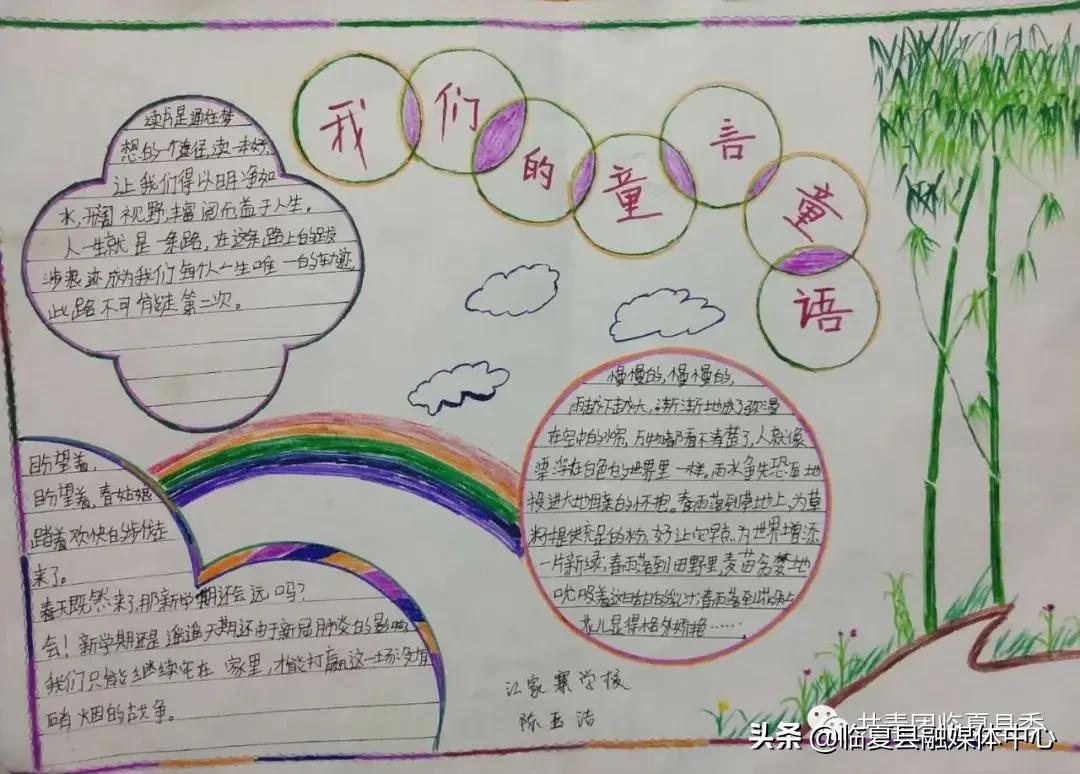 我们的童言童语
读书是通往梦
想的一个途径,读一本好,
让我们得以明净如
水,开阔视野,丰富阅历益于人生。
人一生就是一条路,在这条路上的跋
涉痕迹成为我们每个人一生唯一的轨迹,
此路不可能走第二次。
盼望着,
盼望着,春姑娘
踏着欢快的步伐走
来了。
春天既然来了,那新学期还会远吗?
会!新学期还是遥遥无期还由于新冠肺炎的影响,
我们只能继续宅在家里,才能打赢这一场没有
硝烟的战争。
慢慢的,慢慢的,
雨越下越大,渐渐地成了弥漫
在空中的水帘,万物都看不清楚了,人就像
漂浮在白色的世界里一样。雨水争先恐后地
投进大地母亲的怀抱。春雨落到草地上,为草
提供充足的水分,好让它早点为世界增添
一片新绿;春雨落到田野里,麦苗贪婪地
吮吸着这甘甜的乳汁;春雨落到花朵上,
花儿显得格外娇艳……
江家寨学校
陈玉洁
共青团临夏县委
头条 @临夏县融媒体中心